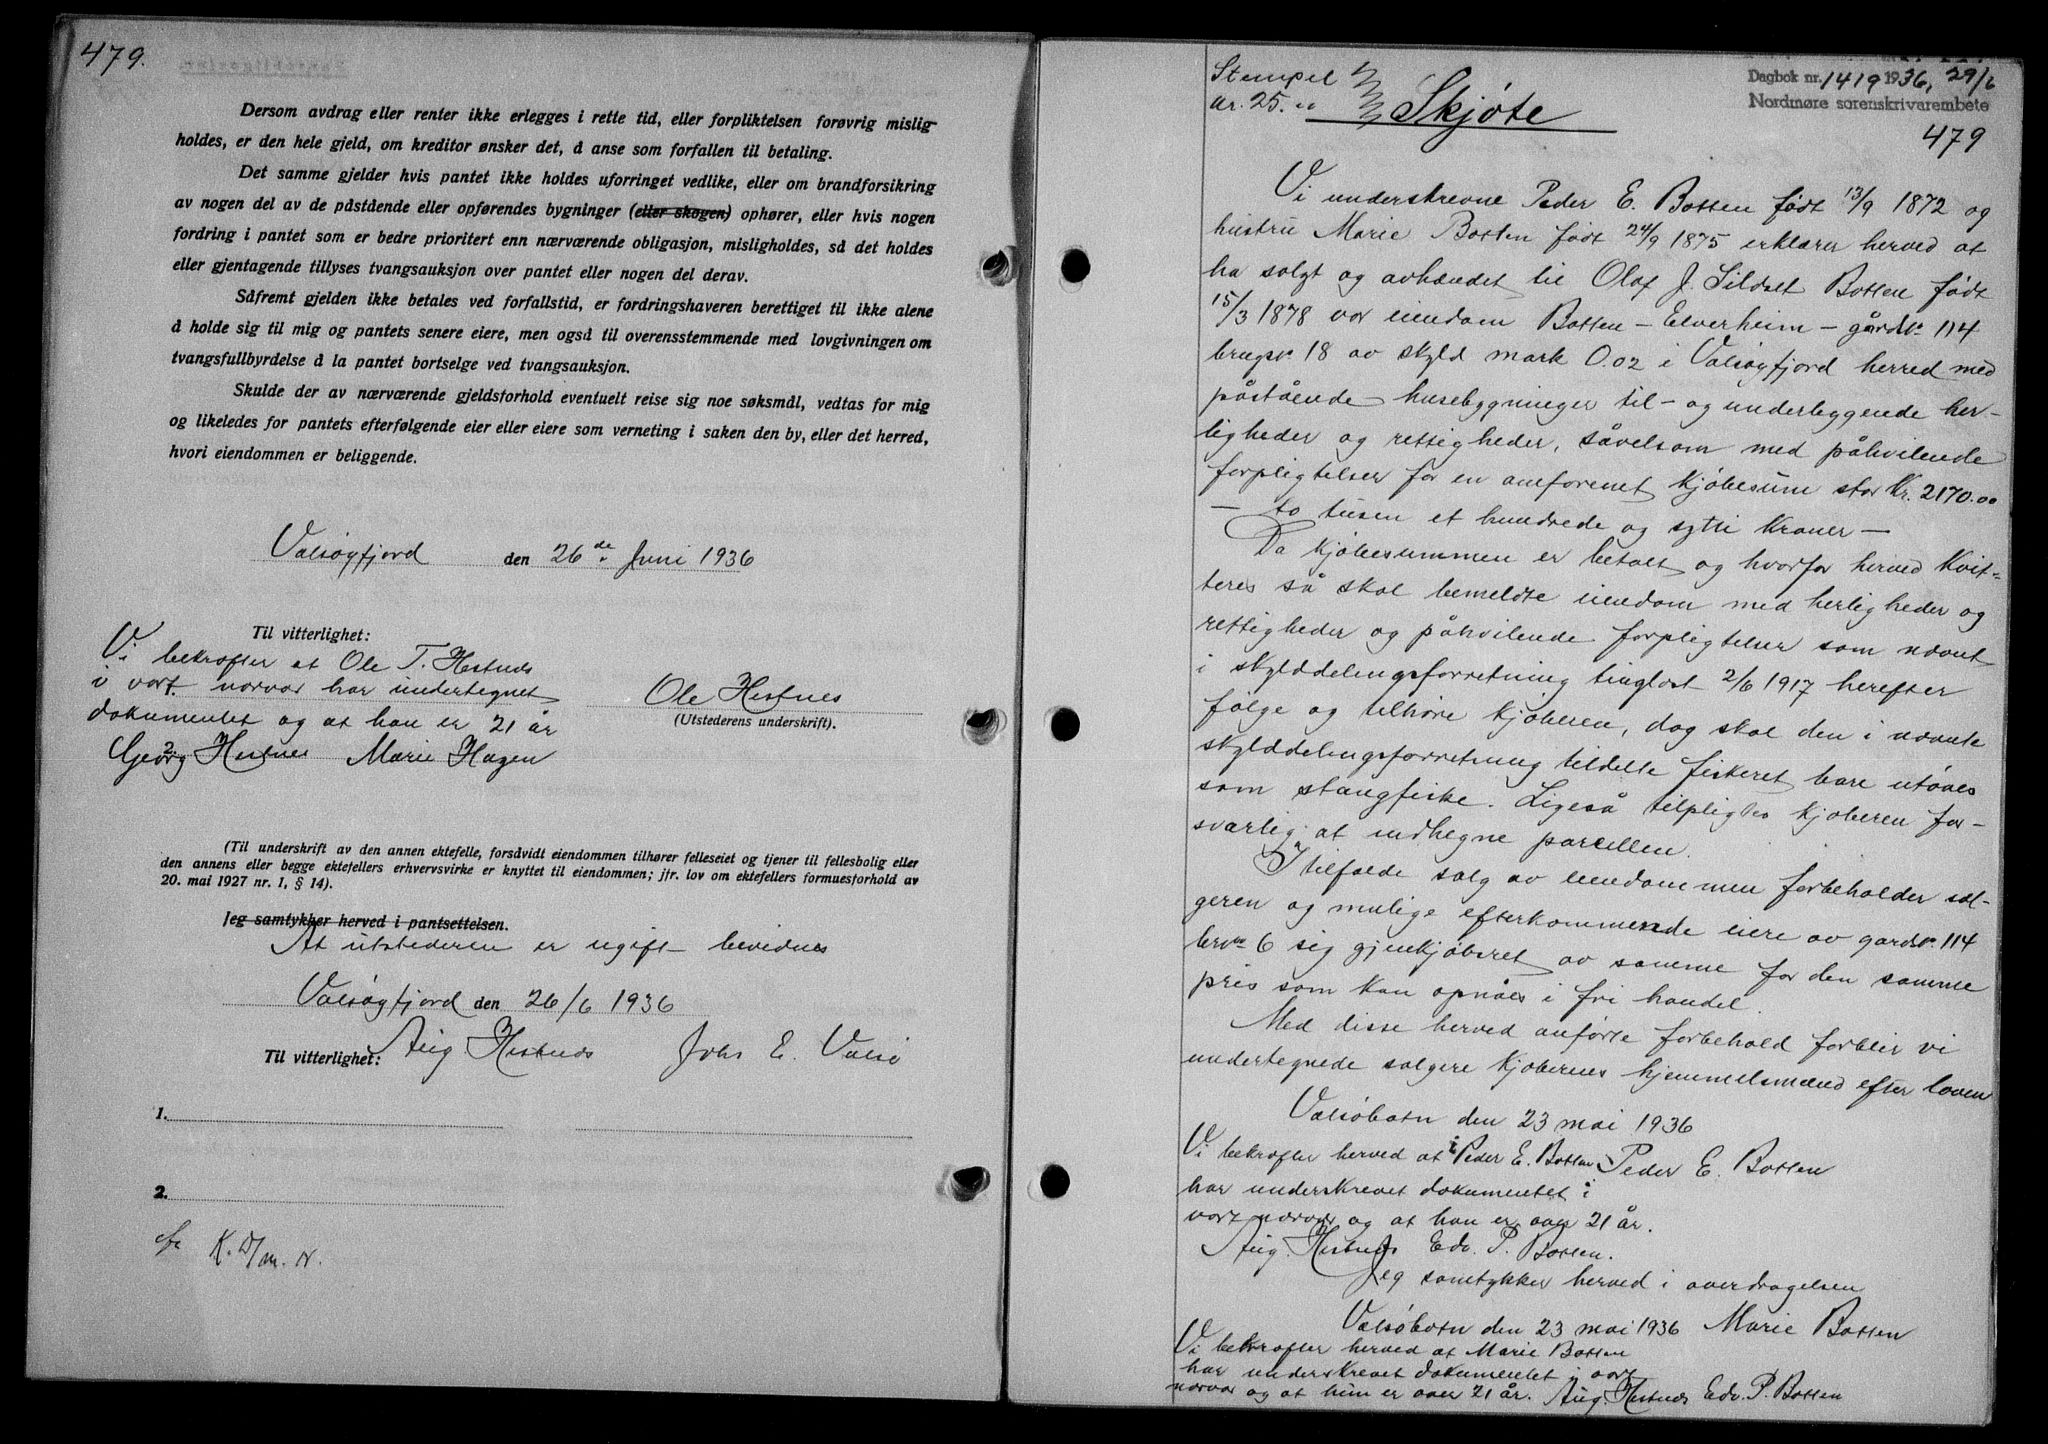 479.
Dersom avdrag eller renter ikke erlegges i rette tid, eller forpliktelsen forøvrig mislig-
holdes, er den hele gjeld, om kreditor ønsker det, å anse som forfallen til betaling.
Det samme gjelder hvis pantet ikke holdes uforringet vedlike, eller om brandforsikring
av nogen del av de påstående eller opførendes bygninger (eller skogen) ophører, eller hvis nogen
fordring i pantet som er bedre prioritert enn nærværende obligasjon, misligholdes, så det holdes
eller gjentagende tillyses tvangsauksjon over pantet eller nogen del derav.
Såfremt gjelden ikke betales ved forfallstid, er fordringshaveren berettiget til ikke alene
å holde sig til mig og pantets senere eiere, men også til overensstemmende med lovgivningen om
tvangsfullbyrdelse å la pantet bortselge ved tvangsauksjon.
Skulde der av nærværende gjeldsforhold eventuelt reise sig noe søksmål, vedtas for mig
og likeledes for pantets efterfølgende eier eller eiere som verneting i saken den by, eller det herred,
hvori eiendommen er beliggende.
Valsøyfjord den 26de Juni 1936
Til vitterlighet:
Vi bekrefter at Ole T. Hestnes
i vort nærvær har undertegnet
dokumentet og at han er 21 år
Ole Hestnes
(Utstederens underskrift).
Georg Hestnes Marie Hagen
2.
(Til underskrift av den annen ektefelle, forsåvidt eiendommen tilhører felleseiet og tjener til fellesbolig eller
den annens eller begge ektefellers erhvervsvirke er knyttet til eiendommen; jfr. lov om ektefellers formuesforhold av
20. mai 1927 nr. 1, § 14).
Jeg samtykker herved i pantsettelsen.
At utstederen er ugift bevidnes
Valsøyfjord den 26/6 1936
Til vitterlighet: Aug Hestnes Johs E. Valsø
1.
2.
Stempel
kr. 25.
Skjøte
Dagbok nr. 1419 1936, 29/6
Nordmøre sorenskrivarembete
479
Vi underskrevne Peder E. Botten født 13/9 1872 og
hustru Marie Botten født 24/9 1875 erklærer herved at
ha solgt og avhændet til Olaf J. Sildset Botten født
15/3 1878 vor eiendom Botten - Elverheim - gårdsnr. 114
bruksnr. 18 av skyld mark 0.02 i Valsøyfjord herred med
påstående husebygninger til- og underliggende her-
ligheder og rettigheder, såvelsom med påhvilende
forpligtelser for en omforenet kjøbesum stor Kr. 2170.00
- to tusen et hundrede og sytti kroner -
Da kjøbesummen er betalt og hvorfor herved kvit-
teres så skal bemeldte eiendom med herligheder og
rettigheder og påhvilende forpligtelser som nævnt
i skylddelingsforretning tinglæst 2/6 1917 herefter
følge og tilhøre kjøberen, dog skal den i nævnte
skylddelingsforretning tildelte fiskeret bare utøves
som stangfiske. Ligeså tilpligtes kjøberen for-
svarlig at indhegne parcellen.
I tilfælde salg av eiendommen forbeholder sæl-
geren og mulige efterkommende eiere av gårdsnr. 114
brnr. 6 sig gjenkjøbsret av samme for den samme
pris som kan opnåes i fri handel.
Med disse herved anførte forbehold forblir vi
undertegnede sælgere kjøbernes hjemmelsmænd efter loven
Valsøbotn den 23 mai 1936
Vi bekrefter herved at Peder E. Botten
Peder E. Botten
har underskrevet dokumentet i
vort nærvær og at han er over 21 år.
Aug. Hestnes Edv. P. Botten.
Jeg samtykker herved i overdragelsen
Valsøbotn den 23 mai 1936 Marie Botten
Vi bekrefter herved at Marie Botten
har underskrevet dokumentet i vort
nærvær og at hun er over 21 år. Aug. Hestnes Edv. P. Botten